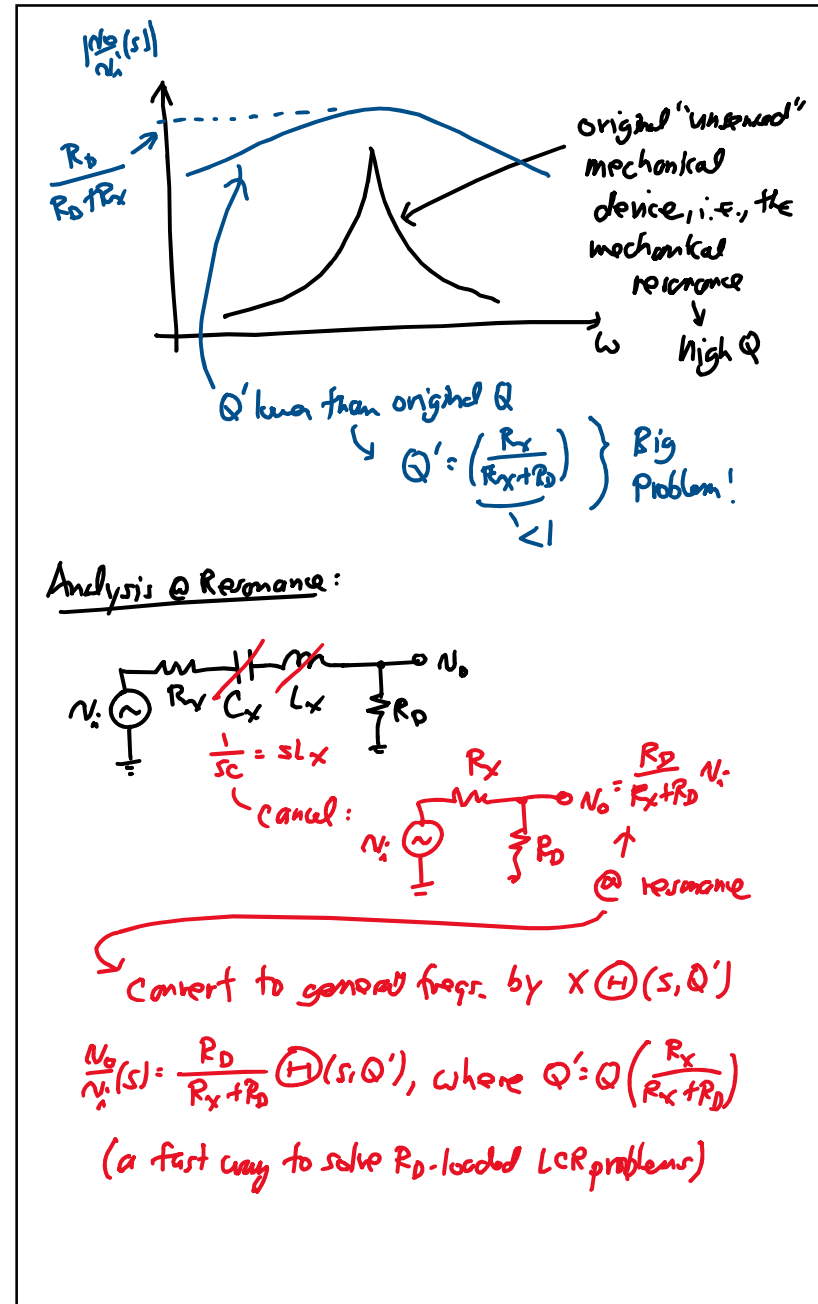 |No/Ni (s)|
R_D/(R_D+R_x)
original "unsensed"
mechanical
device, i.e., the
mechanical
resonance
↓
high Q
ω
Q' lower than original Q
↳ Q' = (R_x/(R_x+R_D)) } Big Problem!
<1
Analysis @ Resonance:
N_i R_x C_x L_x N_o R_D
1/sC = sL_x
cancel:
N_i R_x R_D N_o = R_D/(R_x+R_D) N_i
↑
@ resonance
Convert to general freqs. by x Θ(s,Q')
No/Ni (s) = R_D/(R_x+R_D) Θ(s,Q'), where Q' = Q(R_x/(R_x+R_D))
(a fast way to solve R_D-loaded LCR problems)